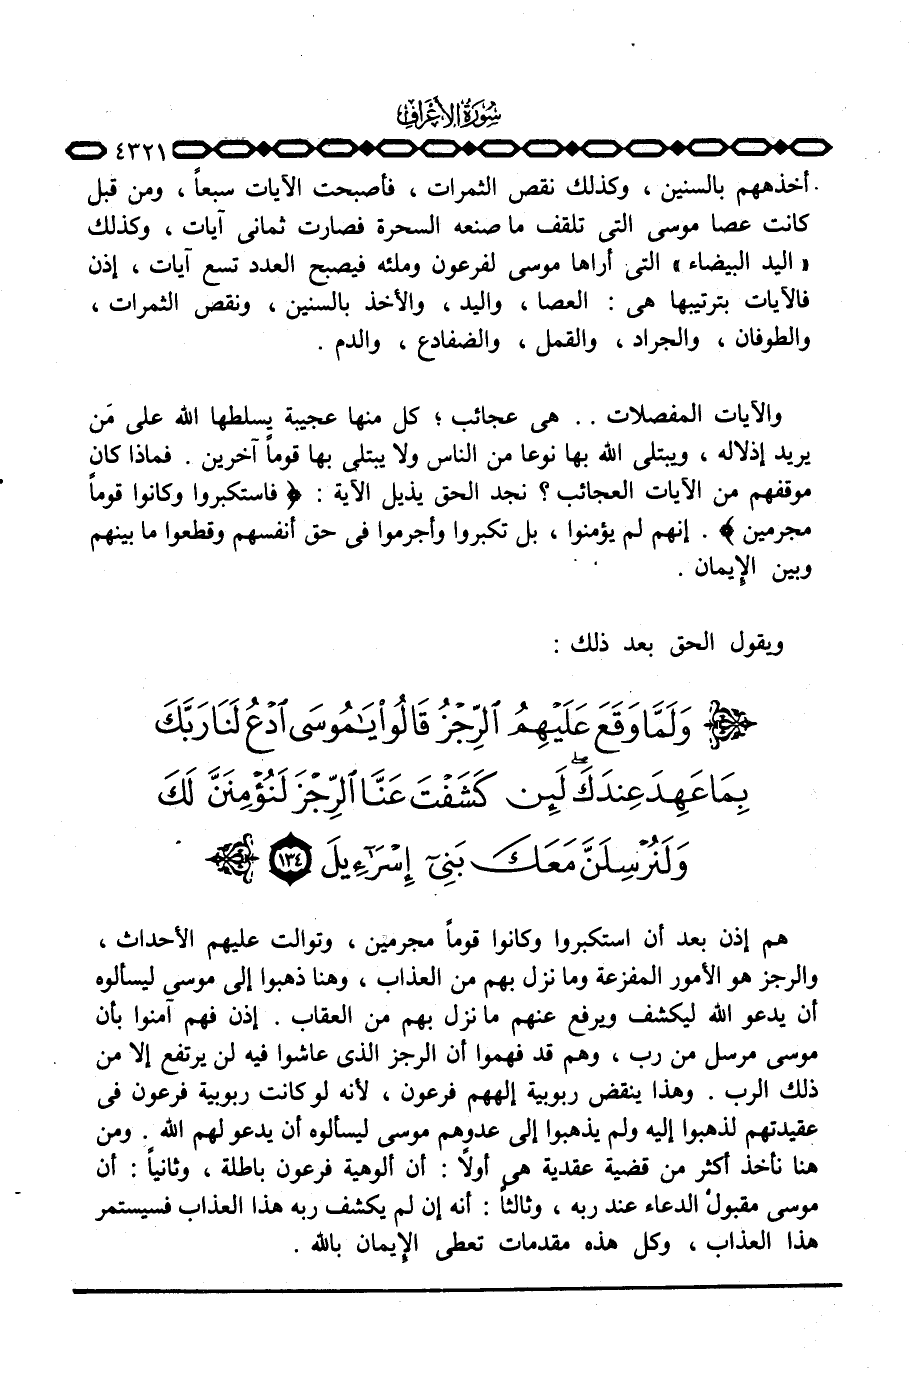 سُورَةُ الأَعْرَافِ
٤٣٢١
أخذهم بالسنين ، وكذلك نقص الثمرات ، فأصبحت الآيات سبعاً ، ومن قبل
كانت عصا موسى التى تلقف ما صنعه السحرة فصارت ثمانى آيات ، وكذلك
« اليد البيضاء » التى أراها موسى لفرعون وملئه فيصبح العدد تسع آيات ، إذن
فالآيات بترتيبها هى : العصا ، واليد ، والأخذ بالسنين ، ونقص الثمرات ،
والطوفان ، والجراد ، والقمل ، والضفادع ، والدم .
والآيات المفصلات .. هى عجائب ؛ كل منها عجيبة يسلطها الله على مَن
يريد إذلاله ، ويبتلى الله بها نوعا من الناس ولا يبتلى بها قوماً آخرين . فماذا كان
موقفهم من الآيات العجائب ؟ نجد الحق يذيل الآية : ﴿ فاستكبروا وكانوا قوماً
مجرمين ﴾ . إنهم لم يؤمنوا ، بل تكبروا وأجرموا فى حق أنفسهم وقطعوا ما بينهم
وبين الإيمان .
ويقول الحق بعد ذلك :
وَلَمَّا وَقَعَ عَلَيْهِمُ ٱلرِّجْزُ قَالُوا۟ يَـٰمُوسَى ٱدْعُ لَنَا رَبَّكَ
بِمَا عَهِدَ عِندَكَ ۖ لَئِن كَشَفْتَ عَنَّا ٱلرِّجْزَ لَنُؤْمِنَنَّ لَكَ
وَلَنُرْسِلَنَّ مَعَكَ بَنِىٓ إِسْرَٰٓءِيلَ ١٣٤
هم إذن بعد أن استكبروا وكانوا قوماً مجرمين ، وتوالت عليهم الأحداث ،
والرجز هو الأمور المفزعة وما نزل بهم من العذاب ، وهنا ذهبوا إلى موسى ليسألوه
أن يدعو الله ليكشف ويرفع عنهم ما نزل بهم من العقاب . إذن فهم آمنوا بأن
موسى مرسل من رب ، وهم قد فهموا أن الرجز الذى عاشوا فيه لن يرتفع إلا من
ذلك الرب . وهذا ينقض ربوبية إلههم فرعون ، لأنه لو كانت ربوبية فرعون فى
عقيدتهم لذهبوا إليه ولم يذهبوا إلى عدوهم موسى ليسألوه أن يدعو لهم الله . ومن
هنا نأخذ أكثر من قضية عقدية هى أولًا : أن ألوهية فرعون باطلة ، وثانياً : أن
موسى مقبولُ الدعاء عند ربه ، وثالثاً : أنه إن لم يكشف ربه هذا العذاب فسيستمر
هذا العذاب ، وكل هذه مقدمات تعطى الإيمان بالله .